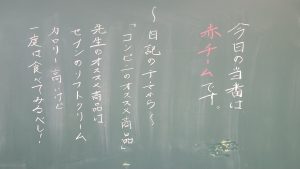 今日の当番は
赤チームです。
～日記のすすめから～
「コンビニのオススメ商品」
先生のオススメ商品は
セブンのソフトクリーム
カロリー高いけど
一度は食べてみるべし!